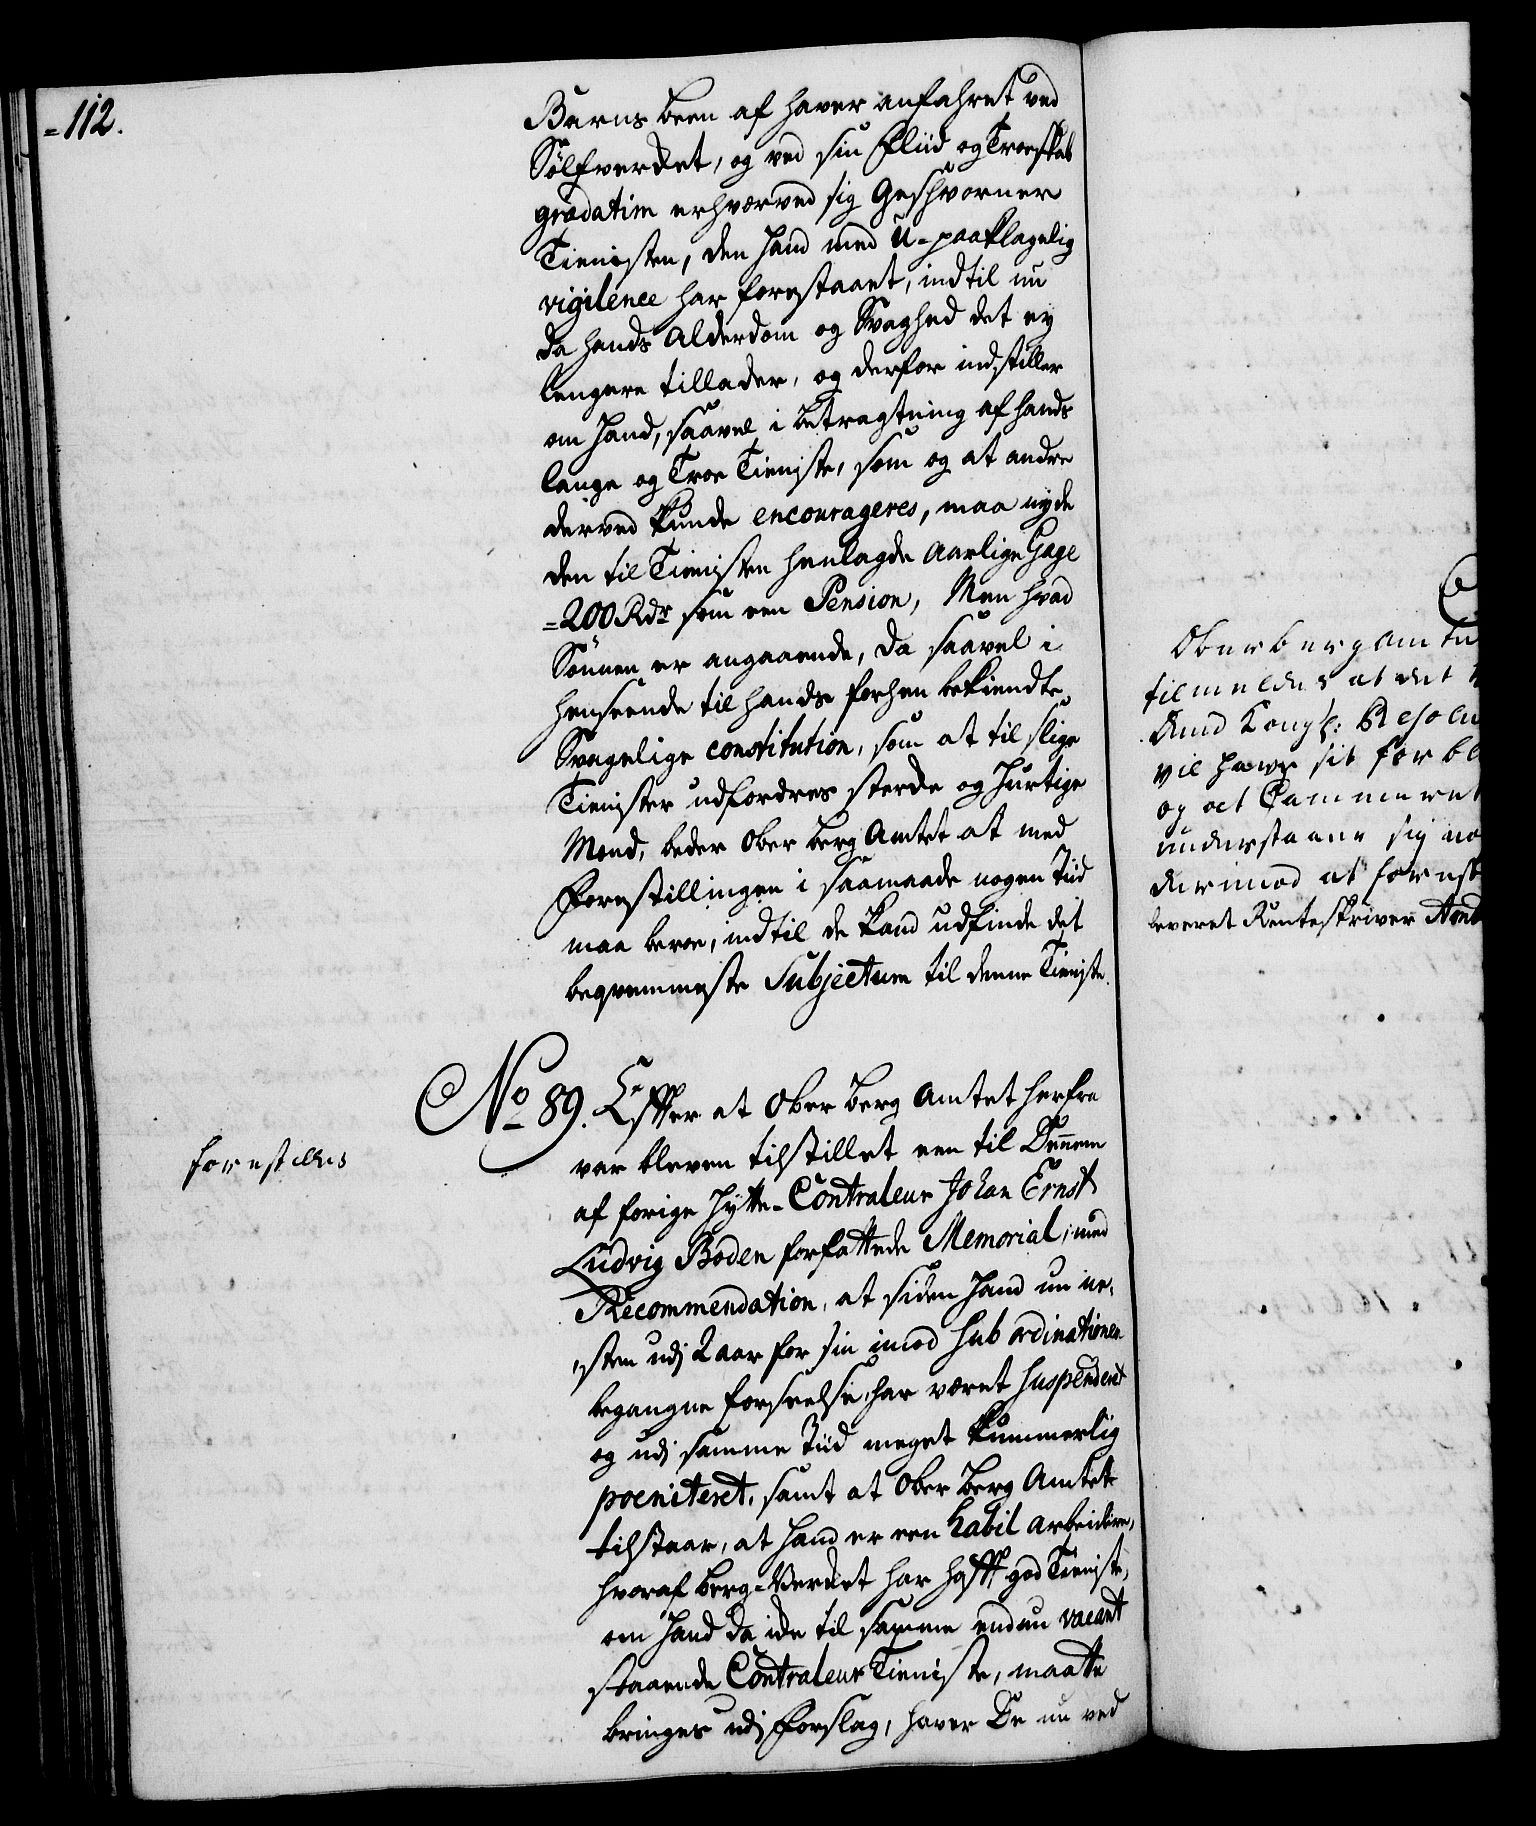 =112.
Barns been af haver anfahret ved
Sølfverket, og ved sin Fliid og Troeskab
gradatim erhværved sig Geschworner
Tienisten, den Hand med U-paaklagelig
vigilence har forestaaet, indtil nu
da hands Alderdom og Svaghed det ey
lengere tillader, og derfor indstiller
om Hand, saavel i betragtning af hands
lange og Troe Tieniste, som og at andre
derved kunde encourageres, maa nyde
den til Tienisten henlagde Aarlige Gage
=200 Rdr som een Pension, Men hvad
Sönnen er angaaende, da saavel i
henseende til hands forhen bekiendte
Svagelige constitution, som at til slige
Tienister udfordres sterke og Hurtige
Mænd, beder Ober Berg Amtet at med
Forestillingen i saamaade nogen Tiid
maa beroe, indtil de kand udfinde det
beqvemmeste Subjectum til denne Tieniste.
No 89. Effter at Ober Berg Amtet herfra
var bleven tilstillet een til Dennem
af forige Hytte-Contraleur Johan Ernst
Ludvig Boden forfattede Memorial, med
Recommendation, at siden Hand nu ne-
sten udj 2 aar for sin imod Subordinationen
begangne forseelse, har været suspenderet
og udj samme Tiid meget kummerlig
poeniteret, samt at Ober Berg Amtet
tilstaar, at Hand er een habil arbeidere,
hvoraf Berg-Verket har hafft god Tieniste,
om Hand da icke til samme endnu vacant
staaende Contraleur Tieniste, maatte
bringes udj Forslag, haver De nu ved
forestilles
Oberbergamtu
tilmeldes at det
Aind Kongl: Resolu
vil have sit forbl
og at Cammeret
understaaer sig
derimod at forest
leveret Renteskriver